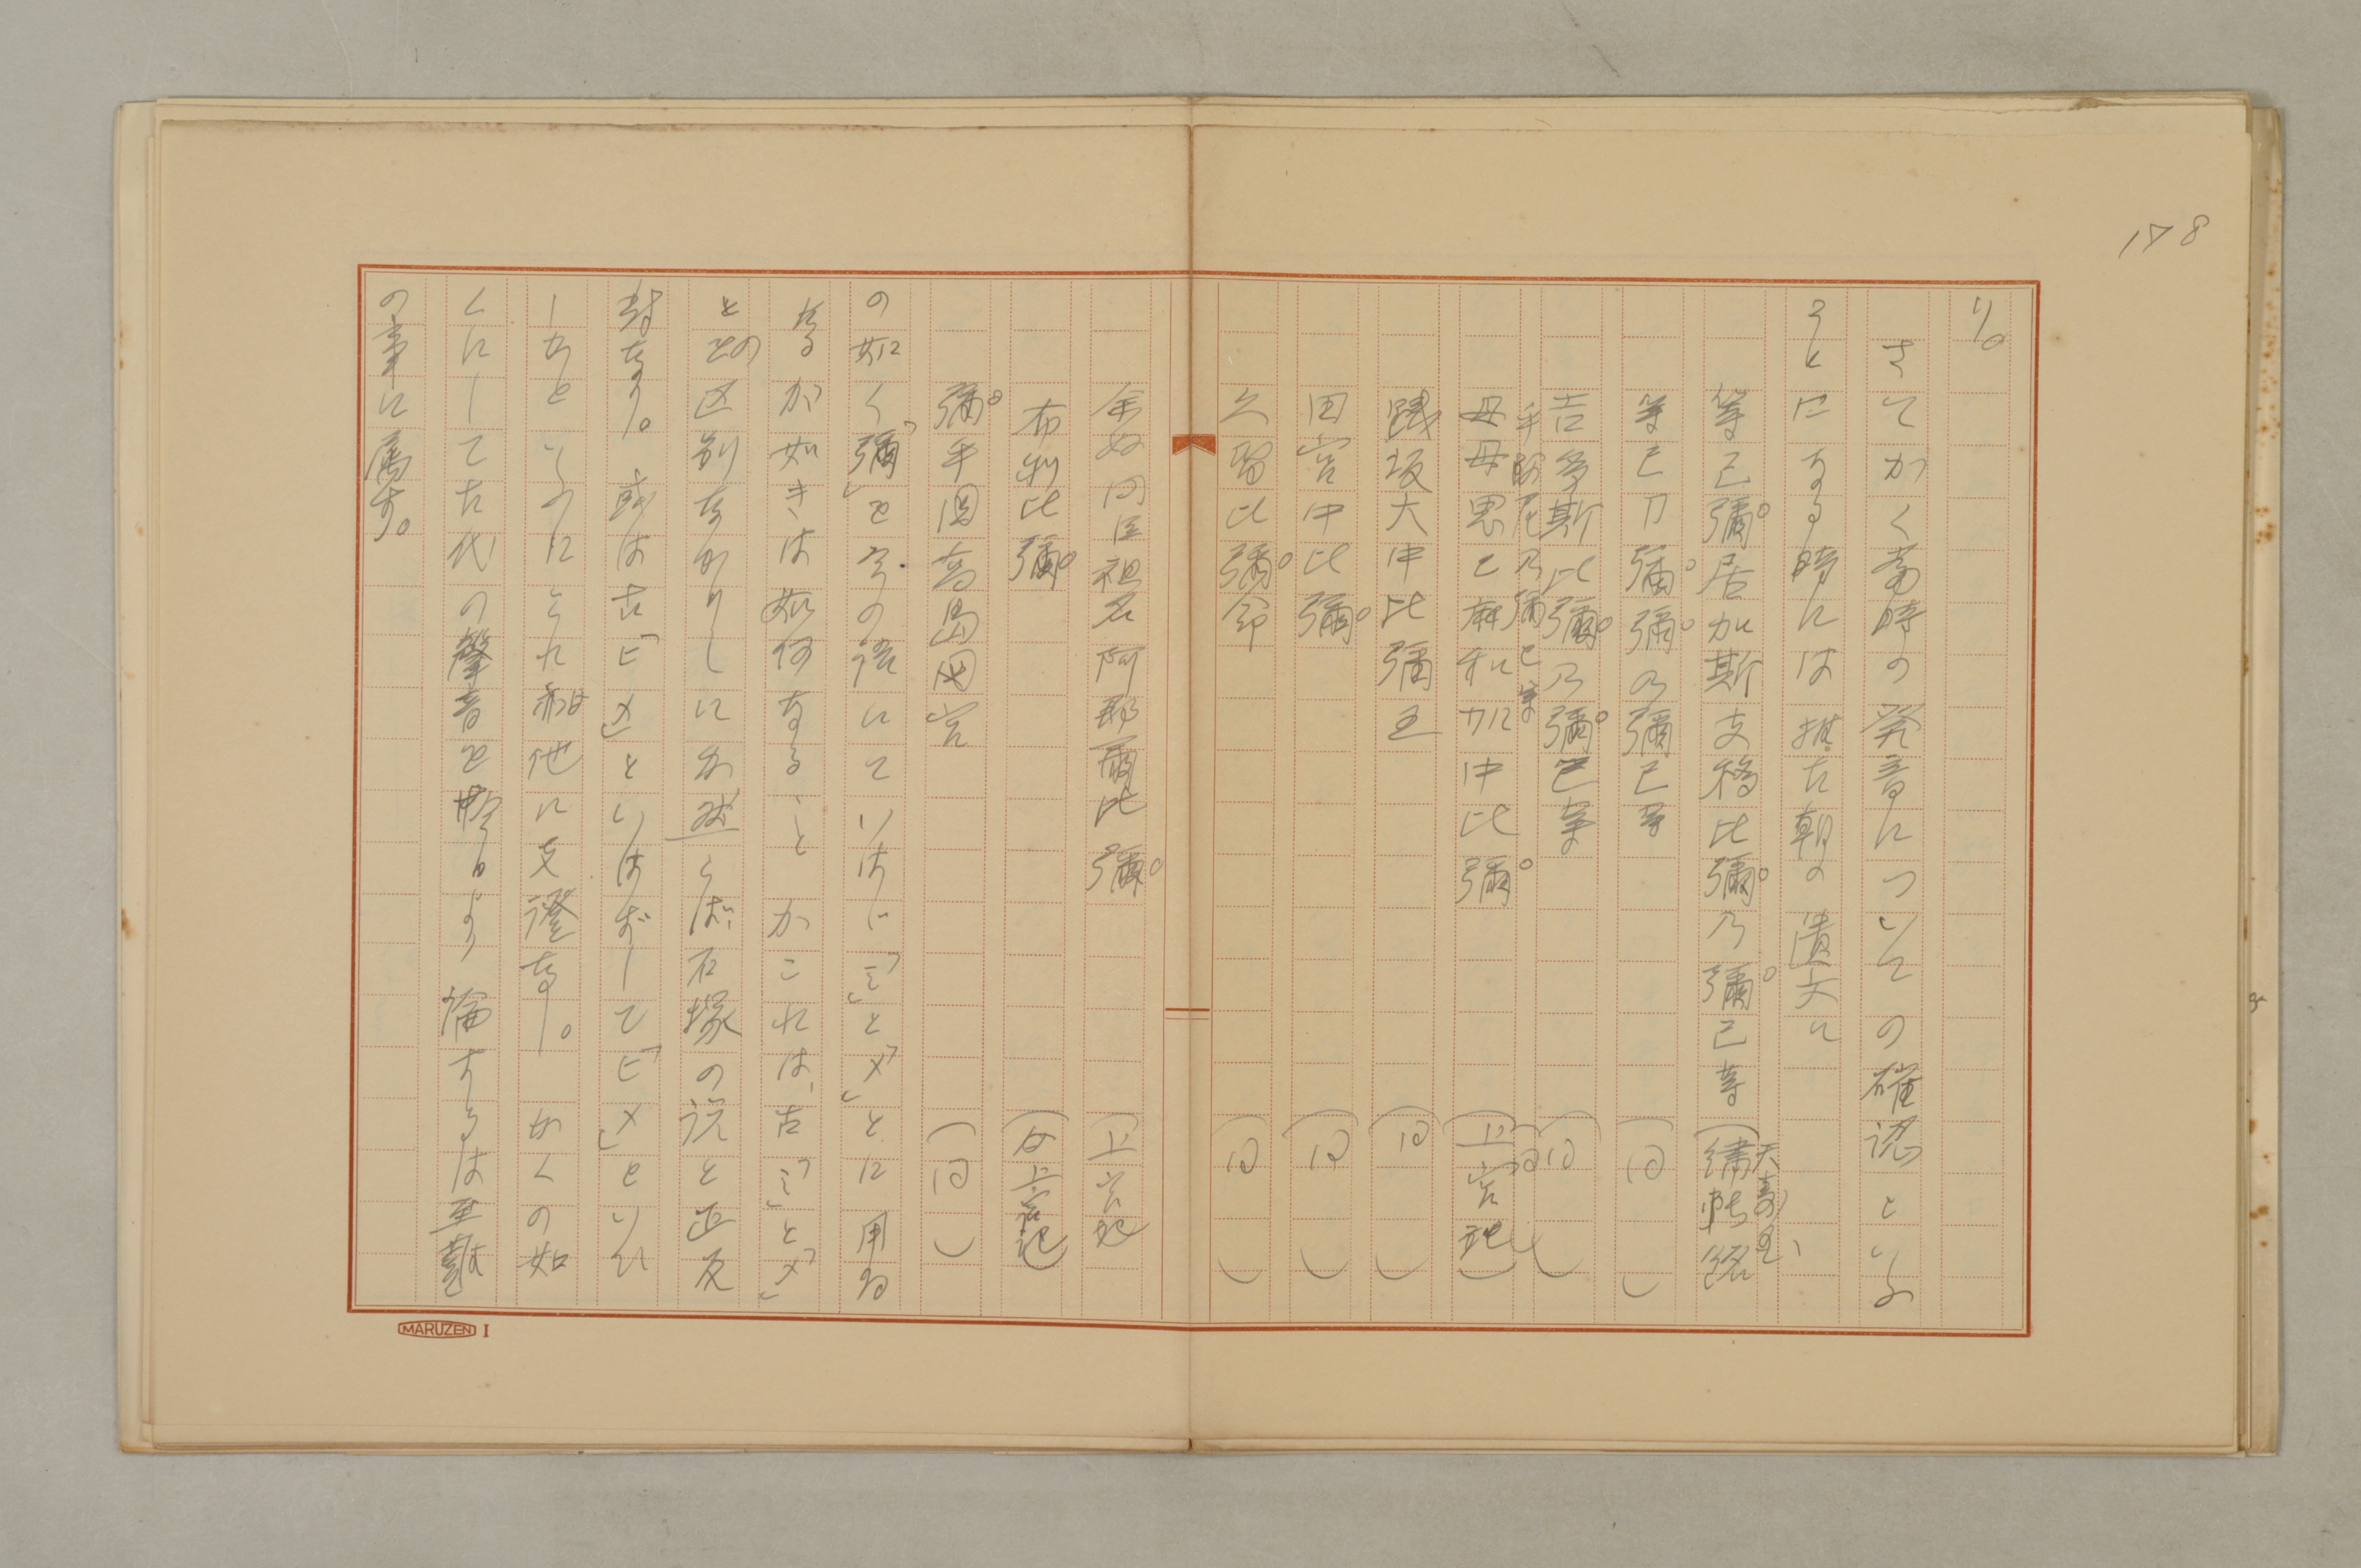 178
り。
さてかく当時の発音についての確認といふ
ことになる時には推古朝の遺文に
等已彌居加斯支移比彌乃彌己等（天寿国、繡帳銘
等已刀彌彌乃彌己等（同）
吉多斯比彌乃彌己等（同）
乃彌己等（同）
母母思己麻和加中比彌（上宮記）
踐坂大中比彌王（同）
田宮中比彌（同）
久留比彌命（同）
余奴臣祖名阿那爾比彌（上宮記
布利比彌（上宮記）
彌乎国高島宮（同）
の如く「彌」を多くの語にていはじ「ミ」と「メ」とに用ゐ
なるが如きは如何なることかこれは、古「ミ」と「メ」
との区別なかりしにか然らば、石塚の説と正反
対なり。或は古「ヒメ」といはずして「ヒメ」といひ
しかといふにこれ亦他に支證なし。かくの如
くにして古代の聲音を軽々しく論ずるは至難
の事に属す。
MARUZEN I